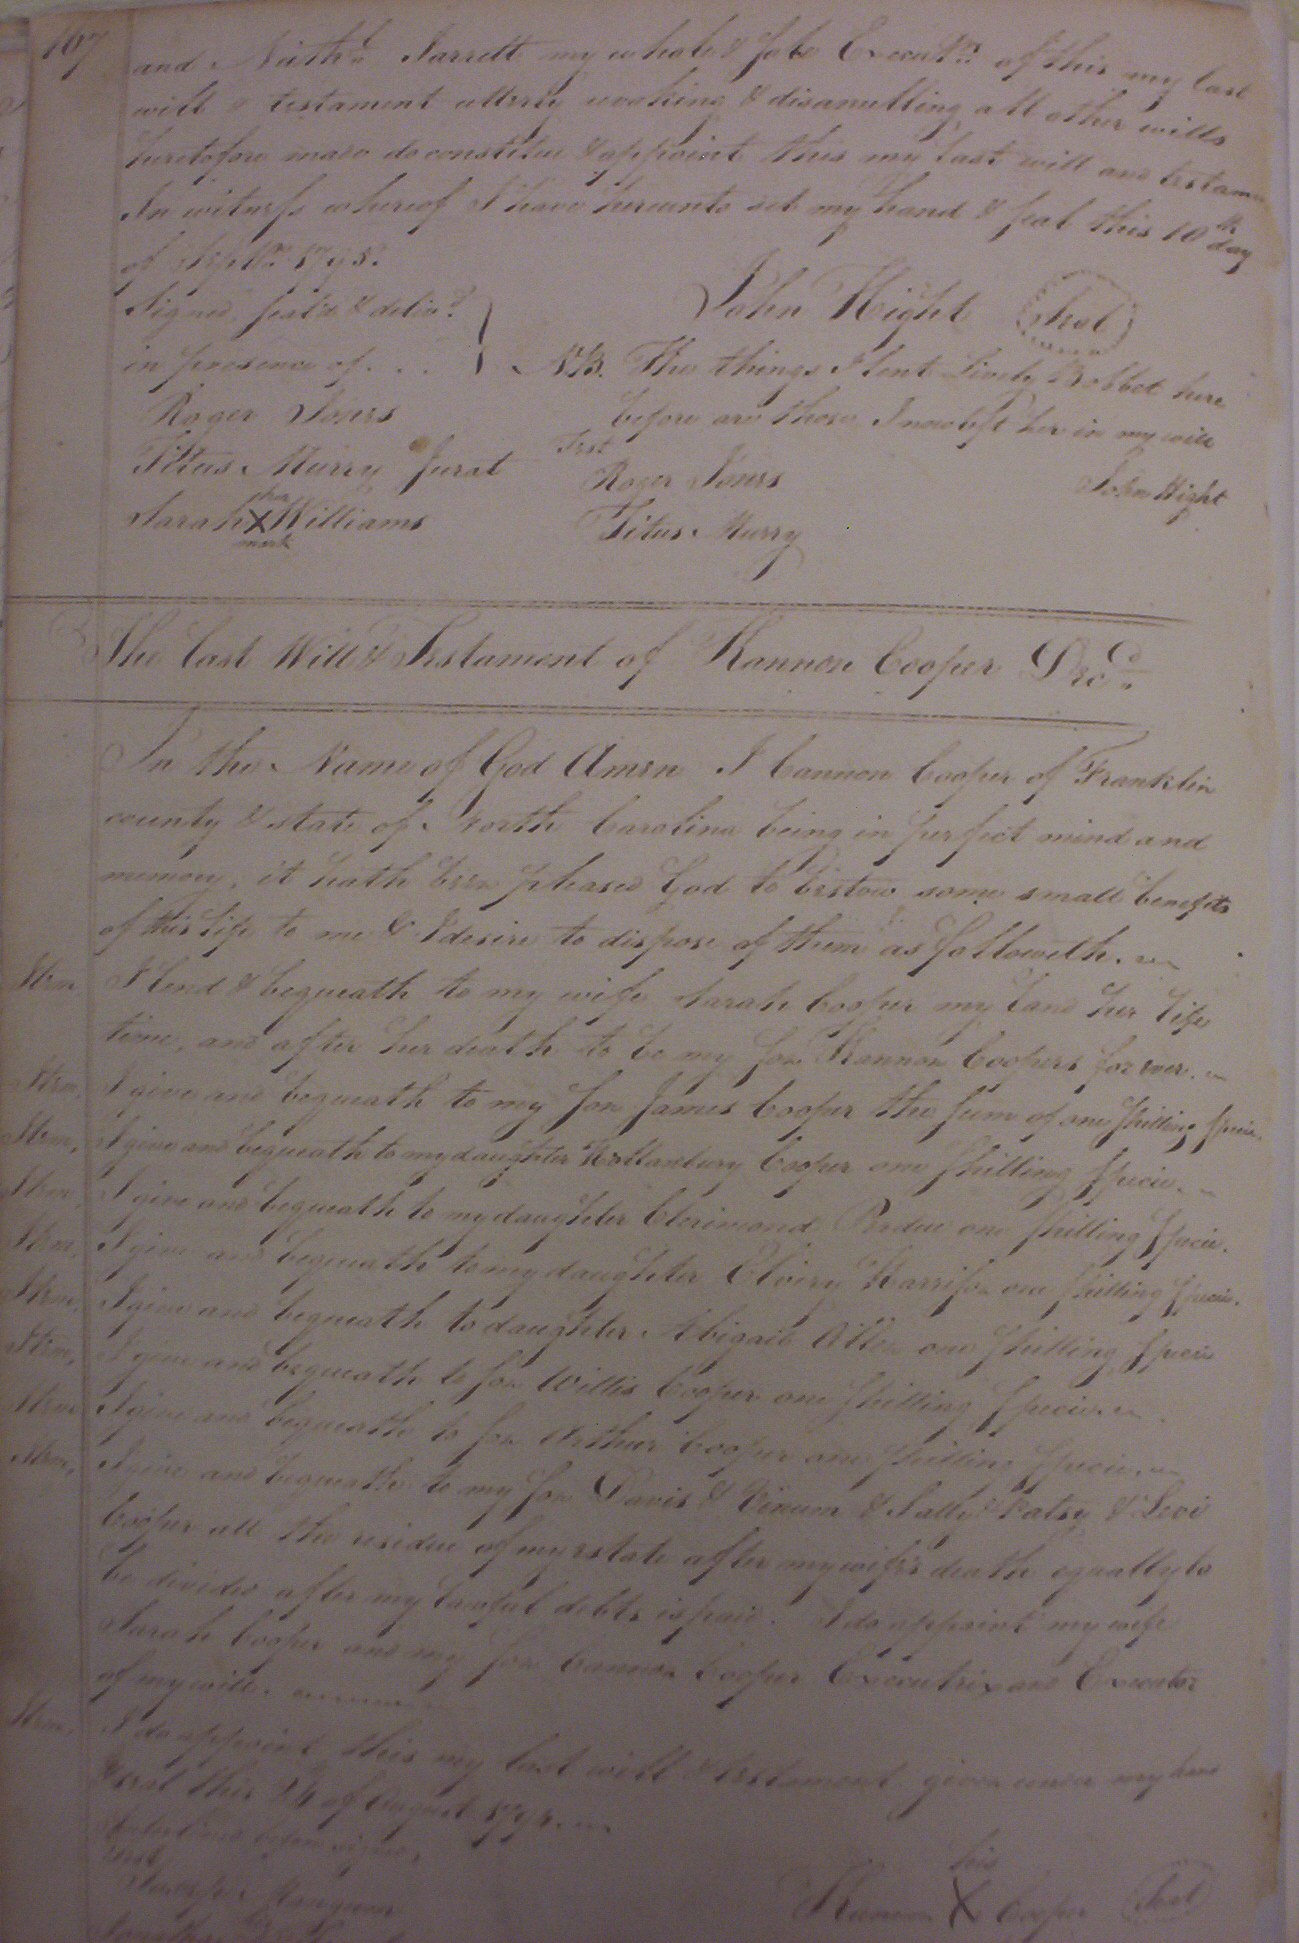 107
and Nath.l Jarrett my whole & sole Execut.rs of this my last
will & testament utterly revoking & disanulling all other wills
heretofore made do constitue & appoint this my last will and testame
In witness whereof I have hereunto set my hand & seal this 10th day
of Sept.r 1795.
Signed, seal'd & deliv.d
in presence of . . .
John Hight Seal
N.B. The things I lent Sively Bobbet here
before are those I now left her in my will
John Hight
Roger Jones
Titus Murry Jurat
Sarah her X mark Williams
Test
Roger Jones
Titus Murry
The last Will & Testament of Kannon Cooper Dec.d
In the Name of God Amen I Cannon Cooper of Franklin
county & state of North Carolina being in perfect mind and
memory, it hath been pleased God to bestow some small benefits
of this life to me & I desire to dispose of them as followeth.
Item I lend & bequeath to my wife Sarah Cooper my land her life
time, and after her death to be my son Kannon Coopers for ever.
Item, I give and bequeath to my son James Cooper the sum of one shilling specie.
Item, I give and bequeath to my daughter Hollanbury Cooper one shilling specie.
Item, I give and bequeath to my daughter Clerimond Perdue one shilling specie.
Item, I give and bequeath to my daughter Elviry Harrison one shilling specie.
Item, I give and bequeath to daughter Abigail one shilling specie
Item, I give and bequeath to son Willis Cooper one shilling specie.
Item I give and bequeath to son Arthur Cooper one shilling specie.
Item, I give and bequeath to my son Davis & & Sally & Patsy & Levi
Cooper all the residue of my estate after my wife's death equally to
be divided after my lawful debts is paid. I do appoint my wife
Sarah Cooper and my son Cannon Cooper Executrix and Executor
of my will.
Item, I do appoint this my last will & testament given under my hand
& seal this of August
before signed,
Test
his
Kannon X Cooper Seal